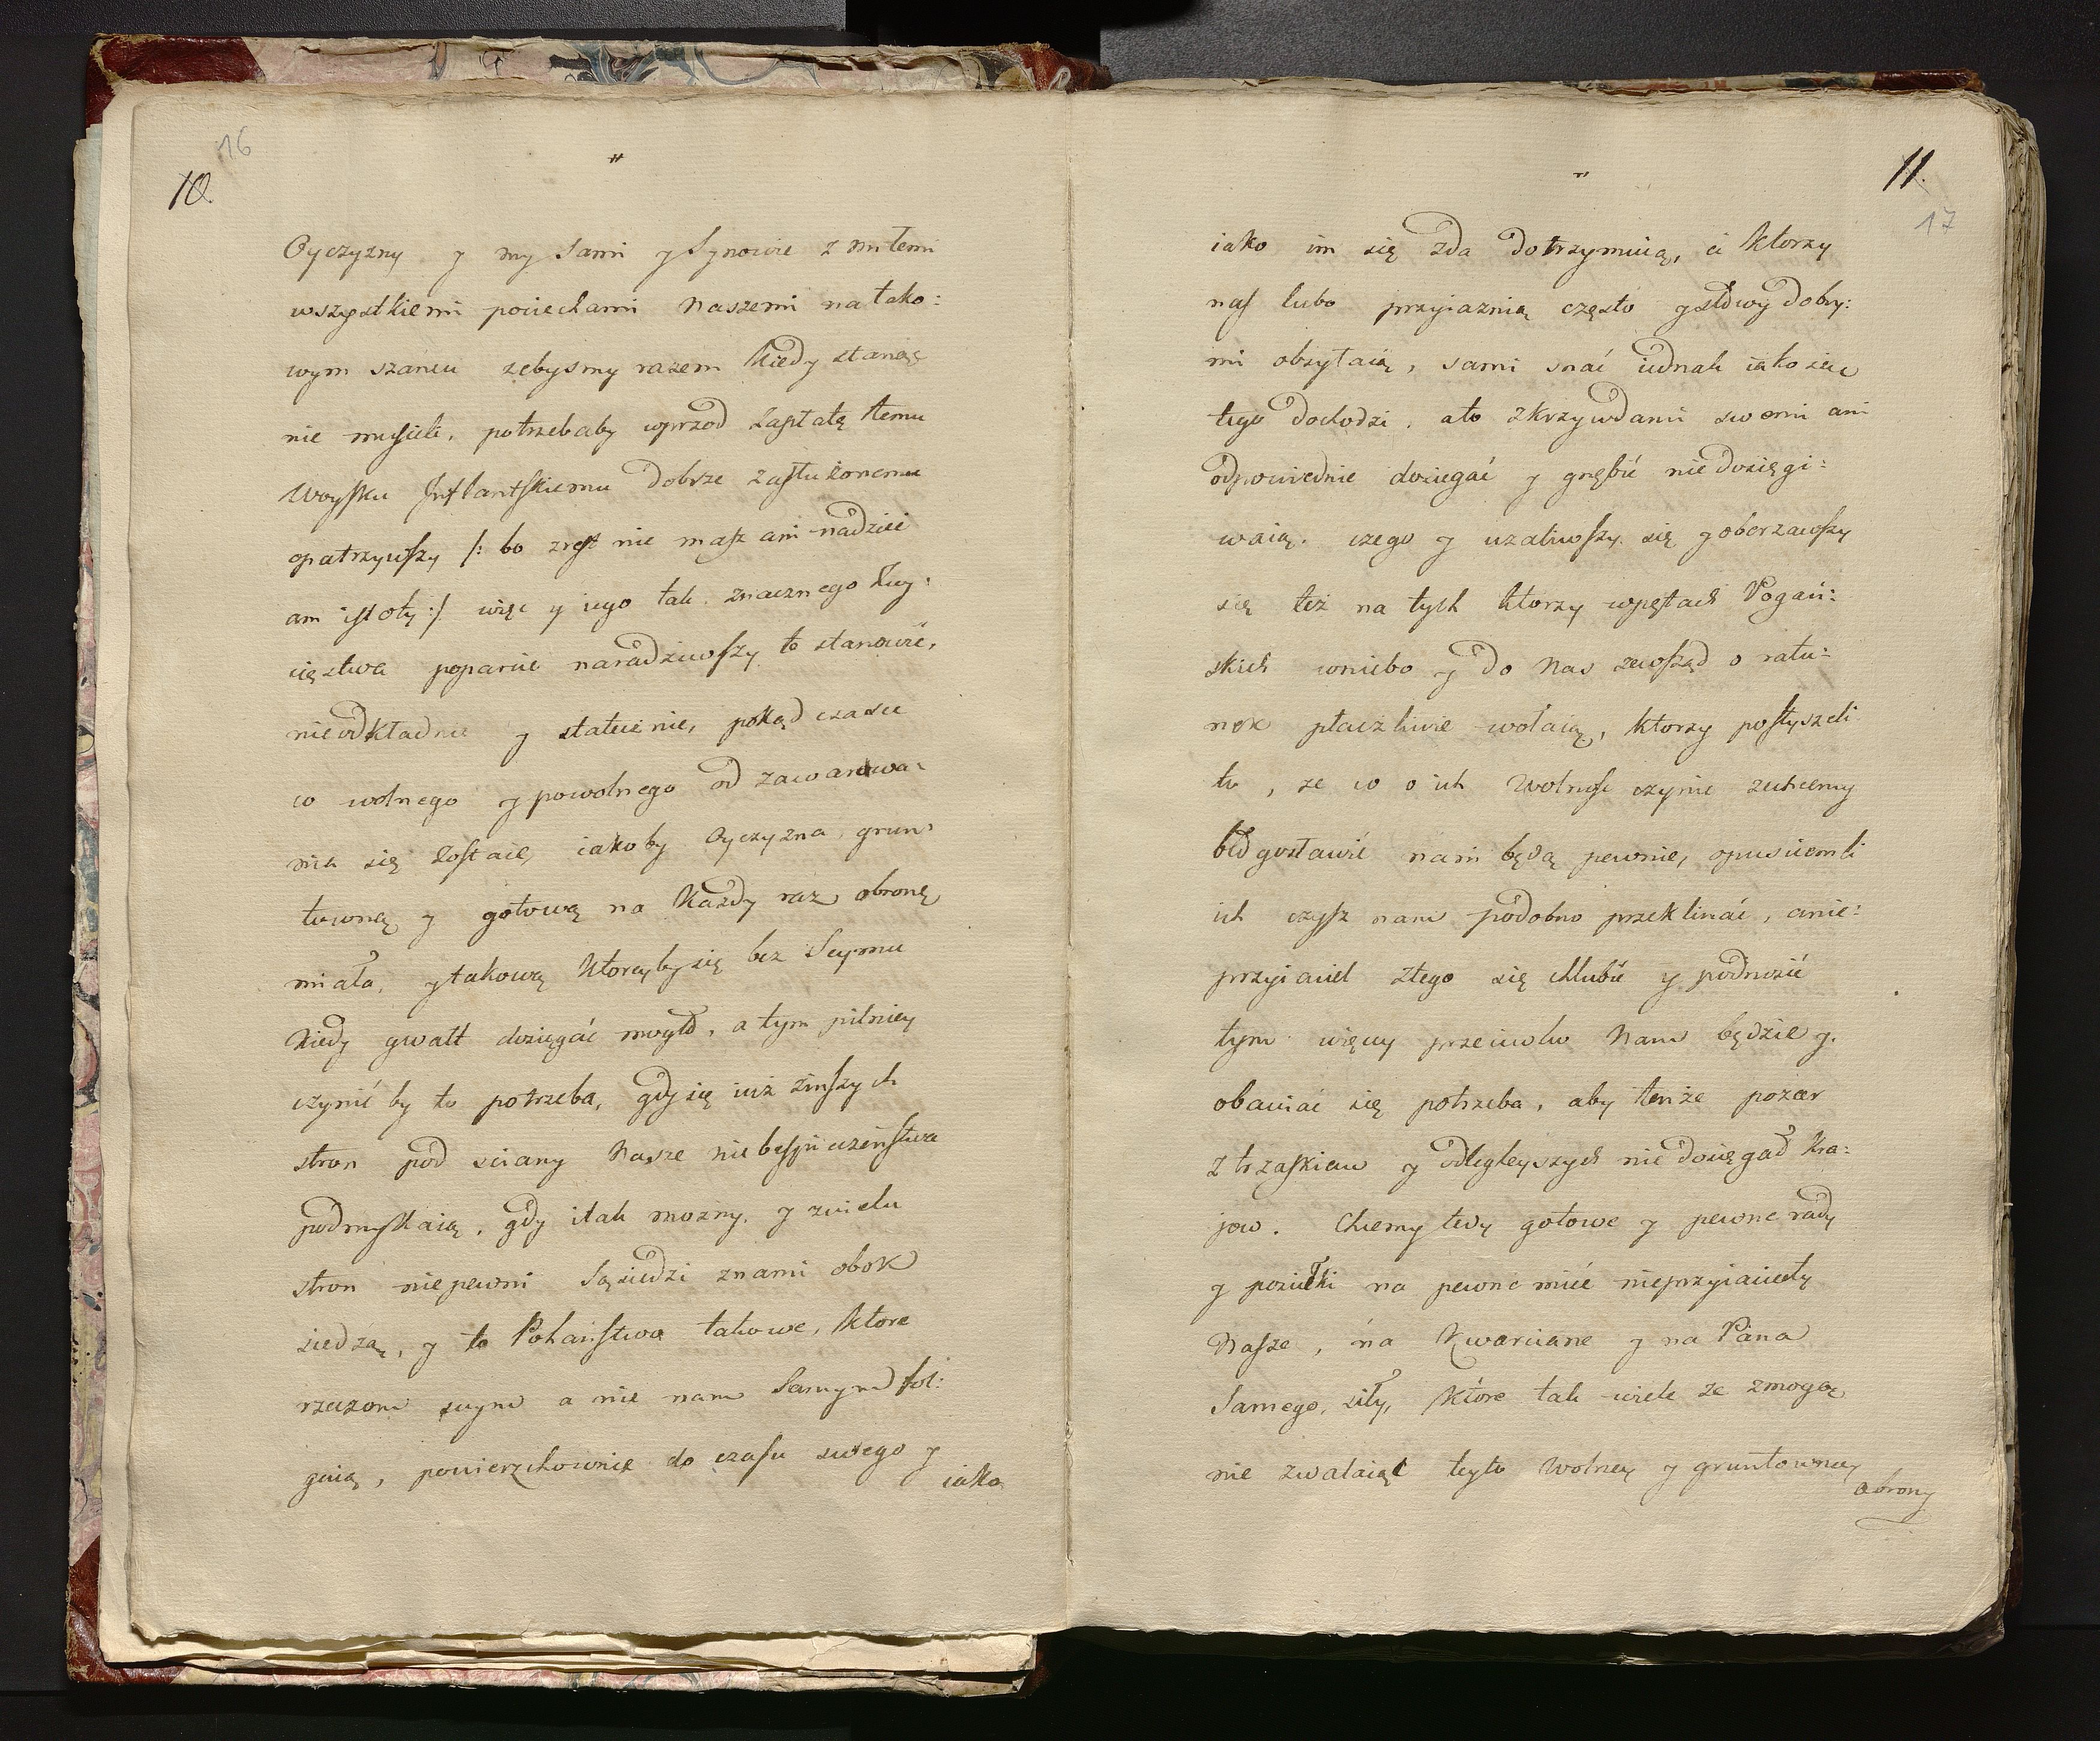 16
10.
Oyczyzny y my sami y Synowie z miłemi
wszystkiemi pociechami naszemi na tako:
wym szancu zebysmy razem kiedy stanąć
nie musieli, potrzebaby wprzod zapłatę temu
Woysku Inflantskiemu dobrze zasłużonemu
opatrzywszy /: bo zreszt nie masz ani nadziei
ani istoty :/ więc y iego tak znacznego zwy:
cięstwa poparcie naradziwszy to stanowić,
nieodkładnie y statecznie, pokąd czasu
wolnego y powolnego od zawarowa:
nia się zostaie, iakoby Oyczyzna grun:
towną y gotową na każdy raz obronę
miała, y takową ktoreyby się bez Seymu
kiedy gwałt dosięgać mogł, a tym pilniey
czynić by to potrzeba, gdy się iuż z inszych
stron pod sciany Nasze niebespieczeństwa
podmykaią, gdy i tak możny, y z wielu
stron niepewni Sąsiedzi z nami obok
siedzą, y to Pohaństwo takowe, ktore
rzeczom swym a nie nam samym fol:
guią, powierzchownie do czasu swego y
iako
11.
17
iako im się zda dotrzymuią, ci ktorzy
nas lubo przyiaznią często y słowy dobry:
mi obsyłaią, sami snać iednak iako się
tego dochodzi, a to z krzywdami swemi ani
odpowiednie dosiegać y gnębić nie dosięgi:
waią. czego y uzaliwszy się y oborzawszy
się też na tych ktorzy w pętach Pogań:
skich w niebo y do Nas zewsząd o ratu:
nek płaczliwie wołaią, ktorzy posłyszeli
to, ze co o ich Wolność czynić zechcemy
błogosławić nam będą pewnie, opusciemli
ich czysz nam podobno przeklinać, a nie:
przyiaciel z tego się chlubić y podnosić
tym więcey przeciwko Nam będzie y.
obawiać się potrzeba, aby tenże pożar
z trzaskiem y odlegleyszych nie dosięgał kra:
jow. Chcemy tedy gotowe y pewne rady
y posiełki na pewne mieć nieprzyiacioły
Nasze, na Kwarciane y na Pana
Samego, siły, które tak wiele ze zmogą
nie zwalaiąc teyto wolney y gruntowney
obrony